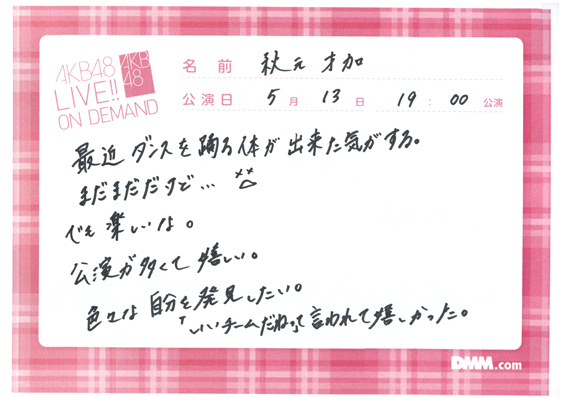 AKB48
LIVE!!
ON DEMAND
AKB
48
名前 秋元 才加
公演日 5月13日 19:00公演
最近 ダンスを踊る体が出来た気がする。
まだまだだけど…
でも楽しいな。
公演が多くて嬉しい。
色々な自分を発見したい。
いいチームだねって言われて嬉しかった。
DMM.com